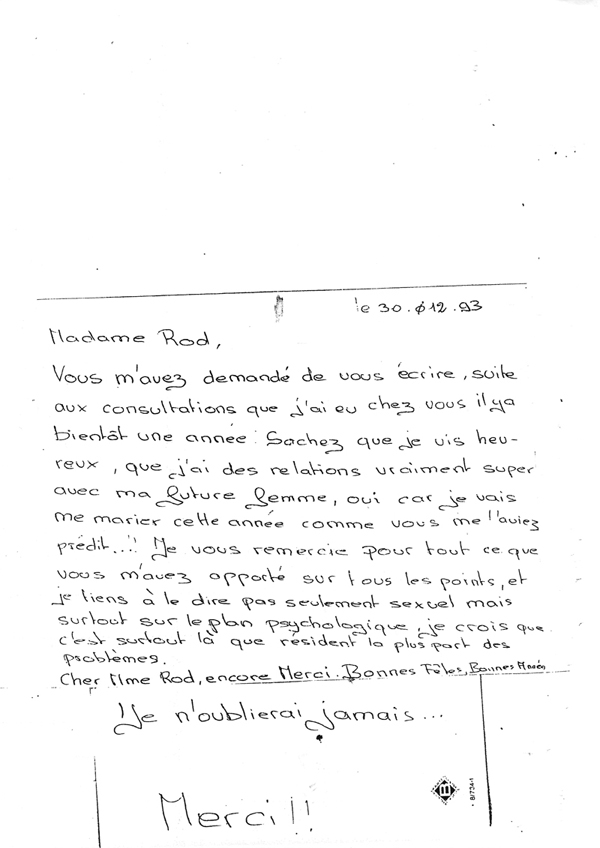 le 30.ø12.93
Madame Rod,
Vous m'avez demandé de vous écrire, suite
aux consultations que j'ai eu chez vous il ya
bientôt une année. Sachez que je vis heu-
reux, que j'ai des relations vraiment super
avec ma future femme, oui car je vais
me marier cette année comme vous me l'aviez
prédit...! Je vous remercie pour tout ce que
vous m'avez apporté sur tous les points, et
je tiens à le dire pas seulement sexuel mais
surtout sur le plan psychologique, je crois que
c'est surtout là que résident la plus part des
problèmes.
Cher Mme Rod, encore Merci. Bonnes Fêtes, Bonnes
Je n'oublierai jamais...
Merci!!
8/734-1